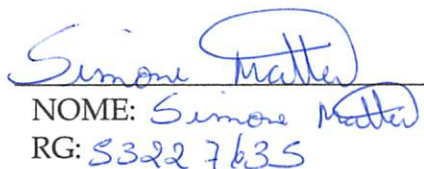 Simone Matter
NOME: Simone Matter
RG: 53227635